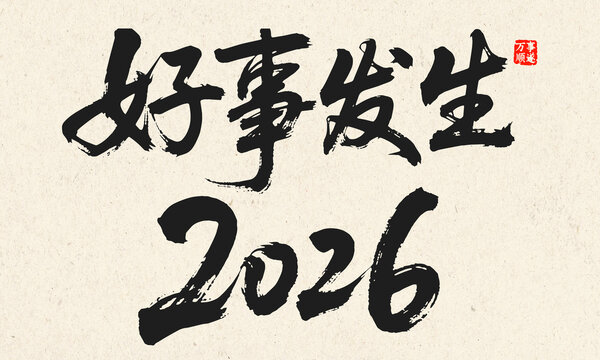 好事发生
万事
顺遂
2026